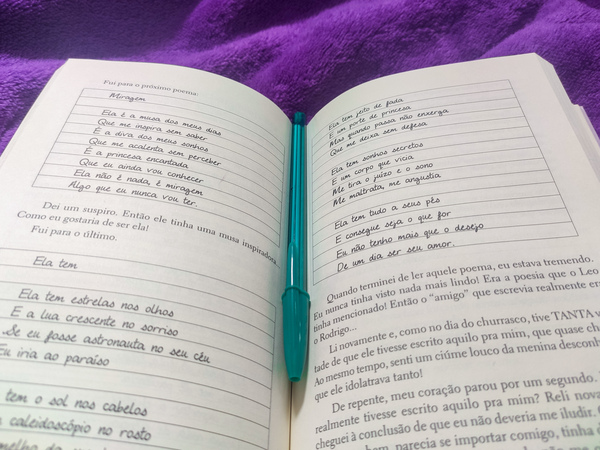 Fui para o próximo poema.
Miragem
Ela é a musa dos meus dias
Que me inspira sem saber
É a diva dos meus sonhos
Que me acalenta sem perceber
É a princesa encantada
Que eu ainda vou conhecer
Ela não é nada, é miragem
Algo que eu nunca vou ter.
Dei um suspiro. Então ele tinha uma musa inspiradora.
Como eu gostaria de ser ela!
Fui para o último.
Ela tem
Ela tem estrelas nos olhos
E a lua crescente no sorriso
Se eu fosse astronauta no seu céu
Eu iria ao paraíso
tem o sol nos cabelos
caleidoscópio no rosto
Ela tem jeito de fada
E um porte de princesa
Mas quando passa não enxerga
Que me deixa sem defesa
Ela tem sonhos secretos
E um corpo que vicia
Me tira o juízo e o sono
Me maltrata, me angustia
Ela tem tudo a seus pés
E consegue seja o que for
Eu não tenho mais que o desejo
De um dia ser seu amor.
Quando terminei de ler aquele poema, eu estava tremendo.
Eu nunca tinha visto nada mais lindo! Era a poesia que o Leo
tinha mencionado! Então o “amigo” que escrevia realmente er
o Rodrigo...
Li novamente e, como no dia do churrasco, tive TANTA v
tade de que ele tivesse escrito aquilo pra mim, que quase ch
Ao mesmo tempo, senti um ciúme louco da menina desconh
que ele idolatrava tanto!
De repente, meu coração parou por um segundo.
realmente tivesse escrito aquilo pra mim? Reli nova
cheguei à conclusão de que eu não deveria me iludir.
parecia se importar comigo, tinha d